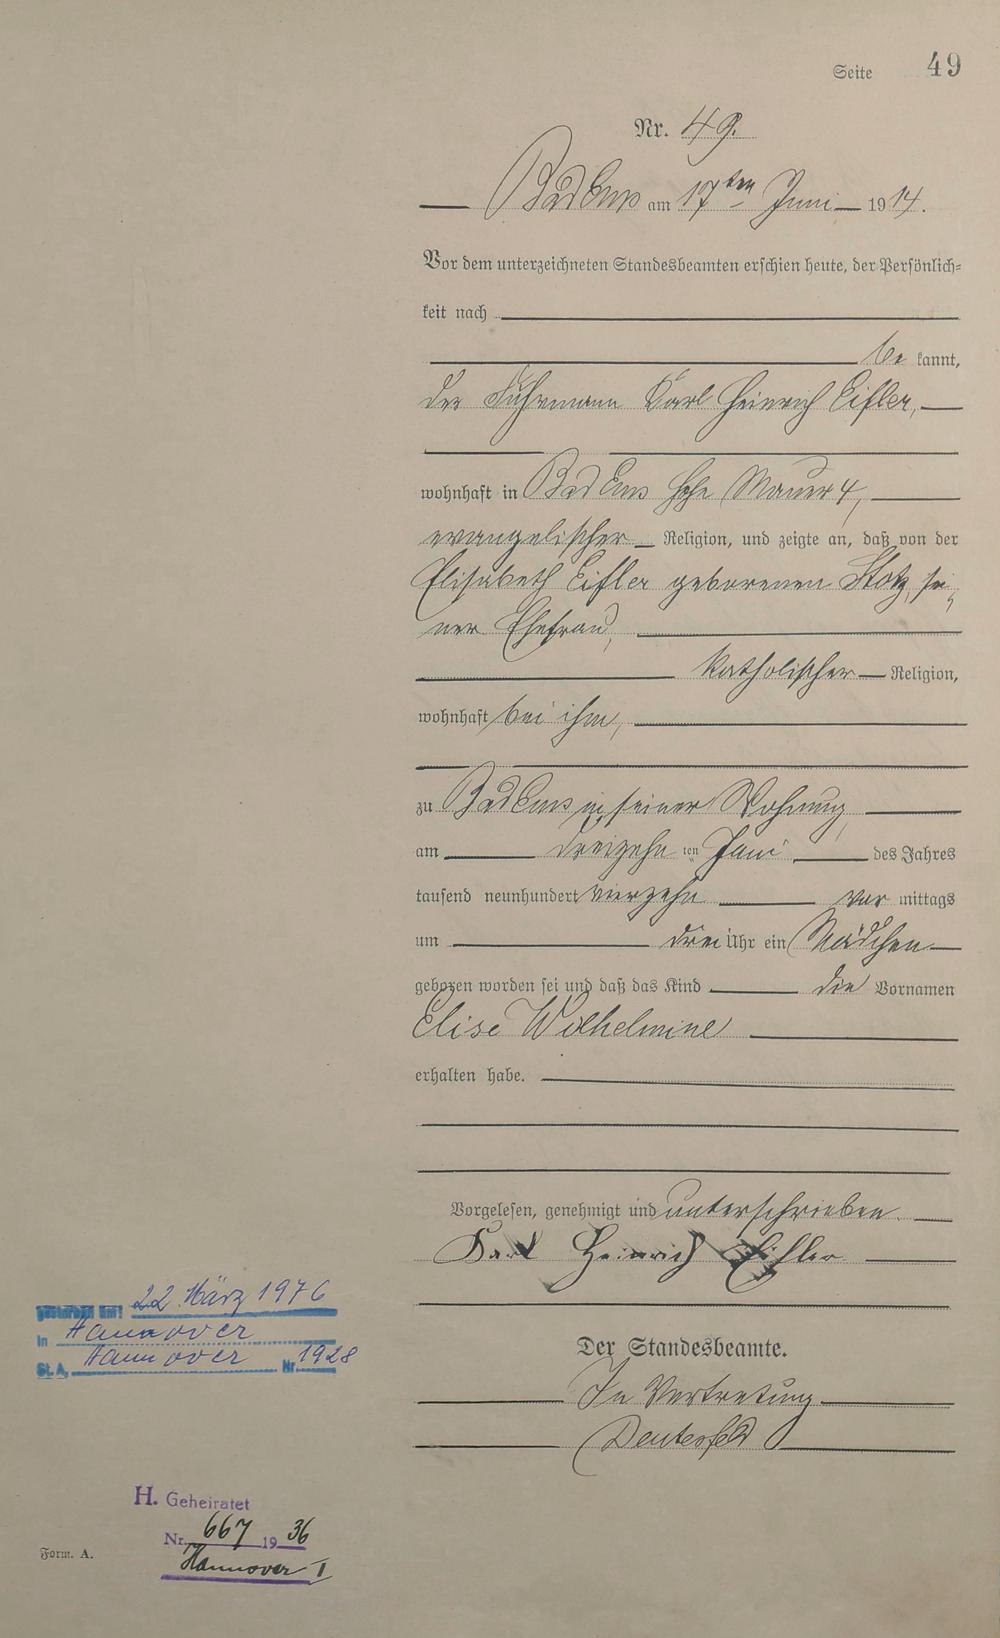 Seite 49
Nr. 49.
Bad Ems am 17ten Juni 1914.
Vor dem unterzeichneten Standesbeamten erschien heute, der Persönlich-
keit nach
be kannt,
der Fuhrmann Karl Heinrich Eifler,
wohnhaft in Bad Ems Hohe Mauer 4,
evangelischer Religion, und zeigte an, daß von der
Elisabeth Eifler geborenen Stotz, sei-
ner Ehefrau,
katholischer Religion,
wohnhaft bei ihm,
zu Bad Ems in seiner Wohnung
am dreizehn ten Juni des Jahres
tausend neunhundert vierzehn vor mittags
um drei Uhr ein Mädchen
geboren worden sei und daß das Kind die Vornamen
Elise Wilhelmine
erhalten habe.
Vorgelesen, genehmigt und unterschrieben.
Karl Heinrich Eifler
Der Standesbeamte.
In Vertretung
gestorben am: 22. März 1976
in Hannover
St. A. Hannover Nr. 1928
H. Geheiratet
Nr. 667 1936
Hannover I
Form. A.